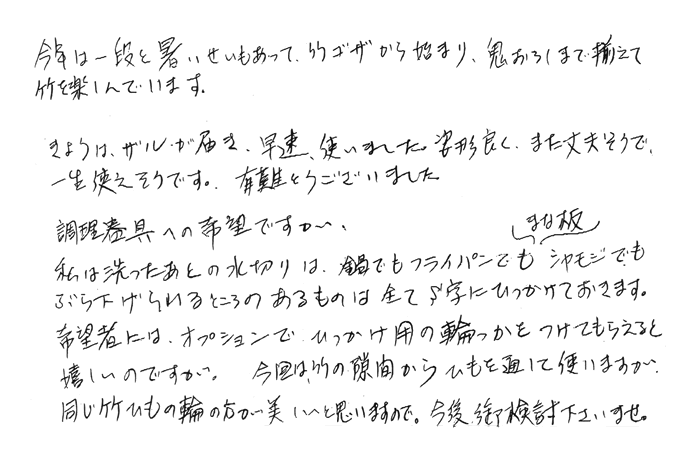 今年は一段と暑いせいもあって、竹ゴザから始まり、鬼おろしまで揃えて
竹を楽しんでいます。
きょうは、ザルが届き、早速、使いました。姿形良く、また丈夫そうで、
一生使えそうです。有難とうございました
調理器具への希望ですが、
まな板
私は洗ったあとの水切りは、鍋でもフライパンでもシャモジでも
ぶら下げられるところのあるものは全てS字にひっかけておきます。
希望者には、オプションで、ひっかけ用の輪っかをつけてもらえると
嬉しいのですが。今回は、竹の隙間からひもを通して使いますが、
同じ竹ひもの輪の方が美しいと思いますので。今後、御検討下さいませ。